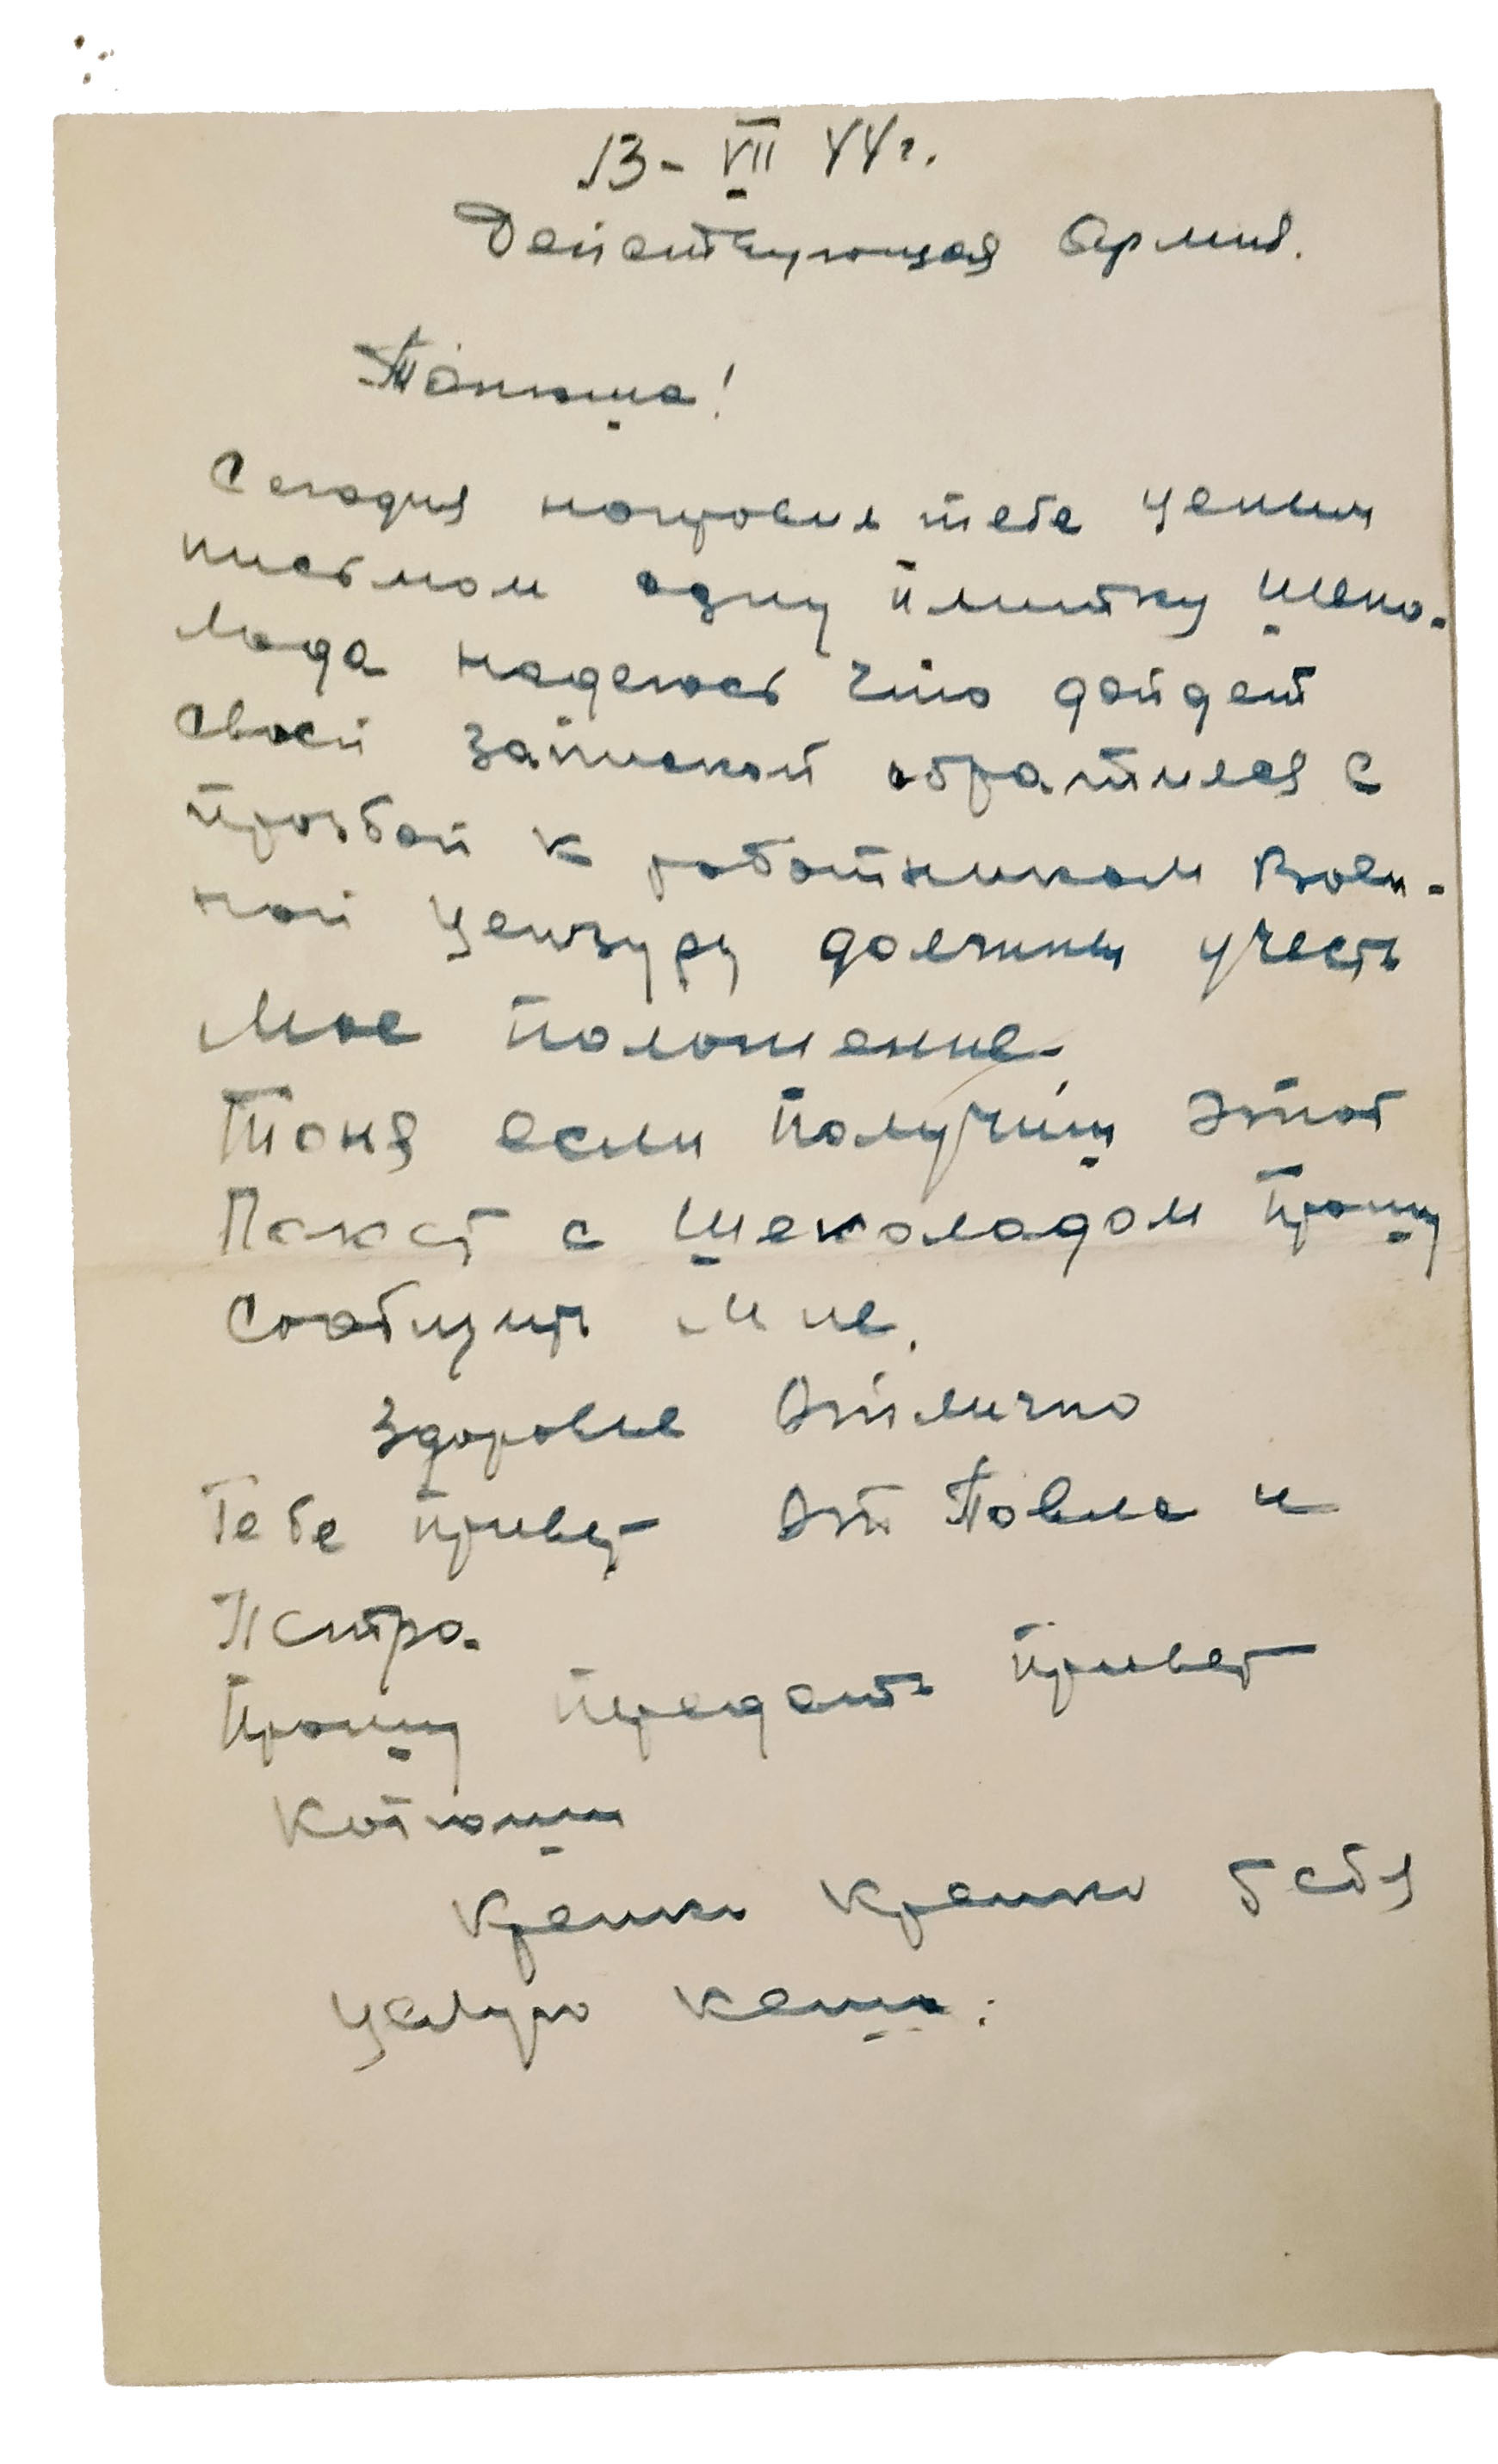 13-VII 44г.
Действующая Армия.
Тонюша!
Сегодня направил тебе ценым
письмом одну плитку шеко-
лада надеюсь что дойдет
своей запиской обратился с
прозбой к работникам Воен-
ной цензуры должны учесть
мое положение.
Тоня если получиш этот
Пакет с шеколадом прошу
сообщить мне.
Здоровье Отлично
Тебе привет От Павла и
Петра.
Прошу передать привет
Катюши
Крепко Крепко тебя
целую Кеша.